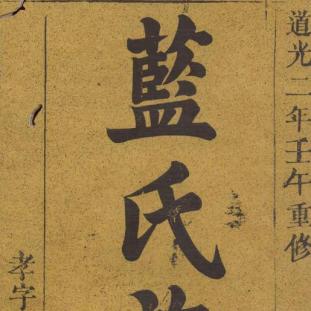 道光二年壬午重修
藍氏
孝字